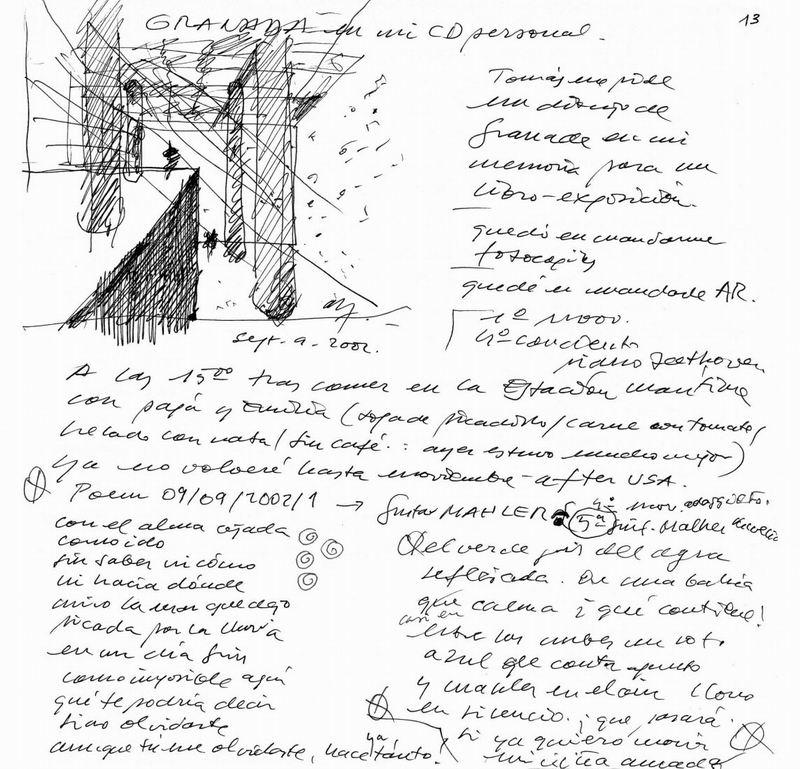 GRANADA en mi CD personal.
13
Tomás me pide
un dibujo de
Granada en mi
memoria para un
libro-exposición.
quedó en mandarme
fotocopias
quedé en mandarle AR.
1º mov.
4º concierto
piano Beethoven
sept. 9. 2002.
A las 15:00 tras comer en la Estación marítima
con papá y Emilia (sopa de picadillo/carne con tomate/
helado con nata/sin café.: ayer estuvo mucho mejor)
ya no volveré hasta noviembre-after USA.
Poem 09/09/2002/1 → Gustav MAHLER
4º mov. adaggieto.
5ª Sinf. Malher
con el alma cojada
como ido
sin saber ni cómo
ni hacia dónde
miro la mar
picada por la lluvia
en un día gris
como imposible aquí
qué te podría decir
sino olvidarte
aunque tú me olvidaste, hace ya tánto!
del verde gris del agua
reflejada. En una bahía
que calma i qué contiene!
casi en
entre las nubes un
azul que
y mahler en el aire llora
en silencio. ¡que pasará.
si ya quiero morir
mi niña amada